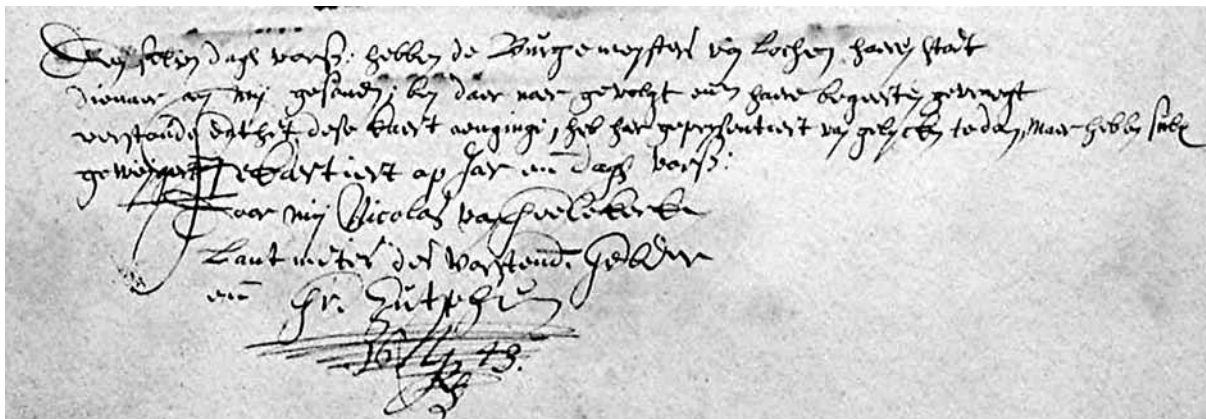 Den selven dagh vorss: hebben de Burgemeysters van Lochem haeren stadt
dienaer an mij gesanden, ben daer naer gevolgt een haere begeerte gevreegt
verstande dat het dese kaert aenginge, heb haer gepresentiert van gelycken te doen, maer hebben sulx
geweijgert Gekartiert op Jar en dagh vorss:
Door mij Nicolas van Geelekercke
Lantmeter des vorstend. Gelder
en Gr. Zutphen